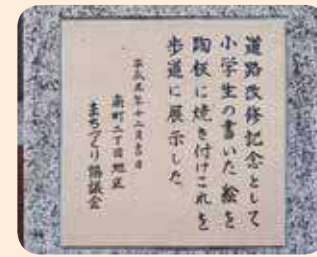 道路改修記念として
小学生の書いた絵を
陶板に焼き付けこれを
歩道に展示した
平成五年十二月吉日
南町二丁目地区
まちづくり協議会